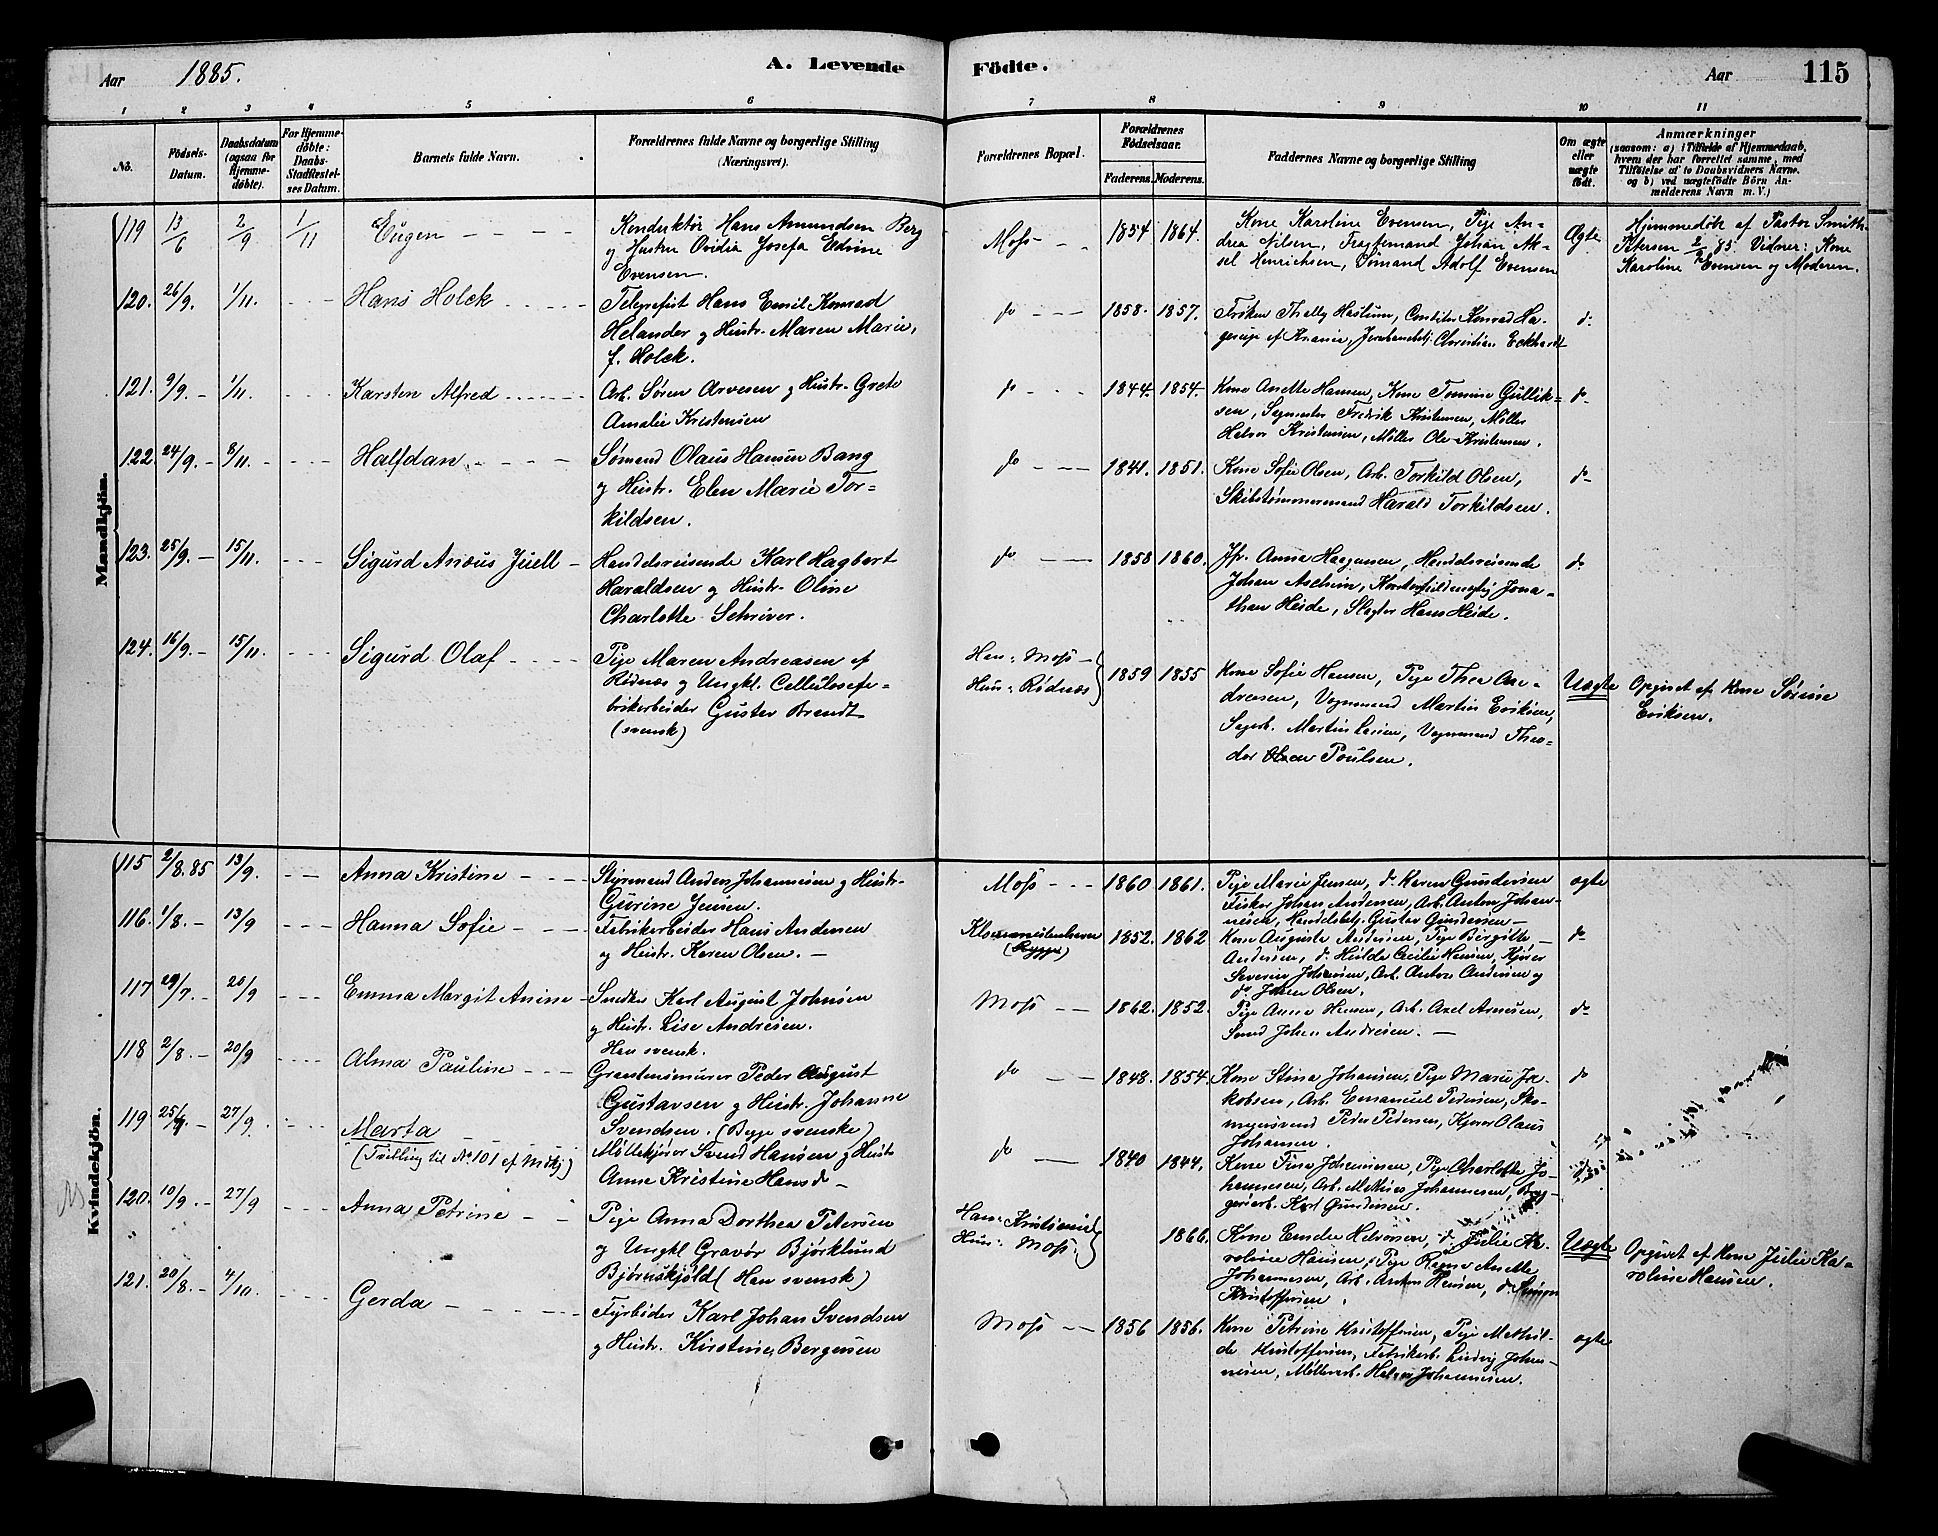 Aar 1885. A. Levende Födte. Aar 115
1 2 3 4 5 6 7 8 9 10 11
No. Födsels-Datum. Daabsdatum (ogsaa for Hjemmedöbte). For Hjemmedöbte: Daabs-Stadfæstelses Datum. Barnets fulde Navn. Forældrenes fulde Navne og borgerlige Stilling (Næringsvei). Forældrenes Bopæl. Forældrenes Födselsaar. Faderens. Moderens. Faddernes Navne og borgerlige Stilling Om ægte eller uægte födt. Anmærkninger (saasom: a) i Tilfælde af Hjemmedaab, hvem der har forrettet samme, med Tilföielse af to Daabsvidners Navne. og b) ved uægtefödte Börn Anmelderens Navn m. V.)
Mandkjön.
119 13/6 2/9 1/11 Eugen Konduktör Hans Amundsen Berg
og Hustru Ovidia Josefa Edvine
Evensen.
Moss 1854 1864. Kone Karoline Evensen, Pige An-
drea Nilsen, Fragtemand Johan Ak-
sel Henrichsen, Sömand Adolf Evensen
Ægte Hjemmedöbt af Pastor Smith
Petersen 2/9 85. Vidner: Kone
Karoline Evensen og Moderen.
120. 26/9. 1/11. Hans Holck Telegrafist Hans Emil Konrad
Helander og Hustr. Maren Marie,
f. Holck.
do 1858. 1857. Fröken Thelly Haslum, Conditor Konrad Ha-
gerup af Krania, Jernbanebetj. Christian Eckhardt
do
121. 9/9. 1/11. Karsten Alfred Arb. Sören Arvesen og Hustr. Grete
Amalie Kristensen
do 1844. 1854. Kone Anette Hansen, Kone Tomine Gullik-
sen, Sagmester Fredrik Kristensen, Möller
Halvor Kristensen, Möller Ole Kristensen.
do
122. 24/9. 8/11. Halfdan Sömand Olaus Hansen Bang
og Hustr. Elen Marie Tor-
kildsen.
do 1841. 1851. Kone Sofie Olsen, Arb. Torkild Olsen,
Skibstömmermand Harald Torkildsen.
do
123. 25/9. 15/11. Sigurd Anæus Juell Handelsreisende Karl Hagbart
Haraldsen og Hustr. Oline
Charlotte Schriver.
do 1858 1860. Jfr. Anna Haagensen, Handelsreisende
Johan Ascheim, Kontorfuldmægtig Jona-
than Heide, Slagter Hans Heide.
do
124. 16/9. 15/11. Sigurd Olaf Pige Maren Andreasen af
Rödnæs og Ungkl. Cellulosefa-
brikarbeider Gustav Brandt
(svensk)
Han: Moss
Hun: Rödnæs
1859 1855 Kone Sofie Hansen, Pige Thea An-
dreasen, Vognmand Martin Eriksen,
Sagarb. Martin Larsen, Vognmand Theo-
dor Poulsen.
Uægte Opgivet af Kone Sörine
Eriksen.
Kvindekjön.
115 2/8.85 13/9. Anna Kristine Styrmand Anders Johannesen og Hustr.
Gurine Jensen.
Moss 1860 1861. Pige Marie Jensen, do Karen Gundersen
Fisker Johan Andersen, Arb. Anton Johan-
nesen, Handelsbetj. Gustav Gundersen
ægte
116. 1/8. 13/9 Hanna Sofie Fabrikarbeider Hans Andersen
og Hustr. Karen Olsen.
(Rygge) 1852. 1862 Kone Auguste Andersen, Pige Bergitte
Andersen, do Hilda Cecilie Hansen, Kjörer
Severin Johansen, Arb. Anton Andersen og
do Johan Olsen.
do
117 29/7. 20/9 Emma Margit Anine Snedker Karl August Johnsen
og Hustr. Lise Andresen.
Han svensk.
Moss 1862. 1852. Pige Anna Hansen, Arb. Axel Arnesen,
Smed Johan Andresen.
do
118 2/8. 20/9 Alma Pauline Graastensmurer Peder August
Gustavsen og Hustr. Johanne
Svendsen. (Begge svenske)
do 1848. 1854. Kone Stina Johansen, Pige Marie Ja-
kobsen, Arb. Emanuel Pedersen, Sko-
magersvend Peder Pedersen, Kjörer Olaus
Johansen.
do
119 27/9. Marta
(Tvilling til No 101 af Mdkj) Möllekjörer Svend Hansen og Hustr.
Anne Kristine Hansd
do 1840 1844. Kone Tina Johannesen, Pige Charlotte Jo-
hannesen, Arb. Mathias Johannesen, Bryg-
geriarb. Karl Gundersen.
120. 10/9. 27/9 Anna Petrine Pige Anna Dorthea Petersen
og Ungkl Gravör Björklund
Björnskjöld (Han svensk)
Han: Kristiania
Hun: Moss
1866. Kone Emilie Halvorsen, do Julie Ka-
roline Hansen, Pige Anette
Johannesen, Arb. Anton Hansen, do
Kristoffersen.
Uægte Opgivet af Kone Julie Ka-
roline Hansen.
121. 20/8. 4/10. Gerda Fyrböder Karl Johan Svendsen
og Hustr. Kirstine Bergersen
Moss 1856 1856. Kone Petrine Kristoffersen, Pige Mathil-
de Kristoffersen, Fabrikarb. Ludvig Johan-
nesen, Möllerarb. Johannesen.
ægte